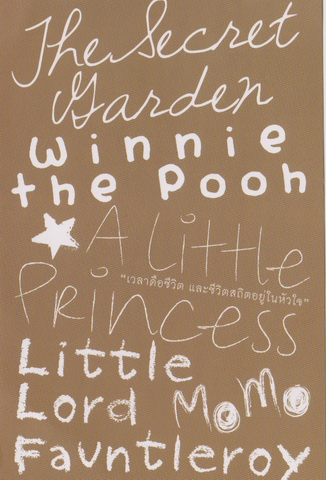 The Secret
Garden
Winnie
the Pooh
A Little
"เวลาคือชีวิต และชีวิตสถิตอยู่ในหัวใจ"
Princess
Little
Lord Momo
Fauntleroy